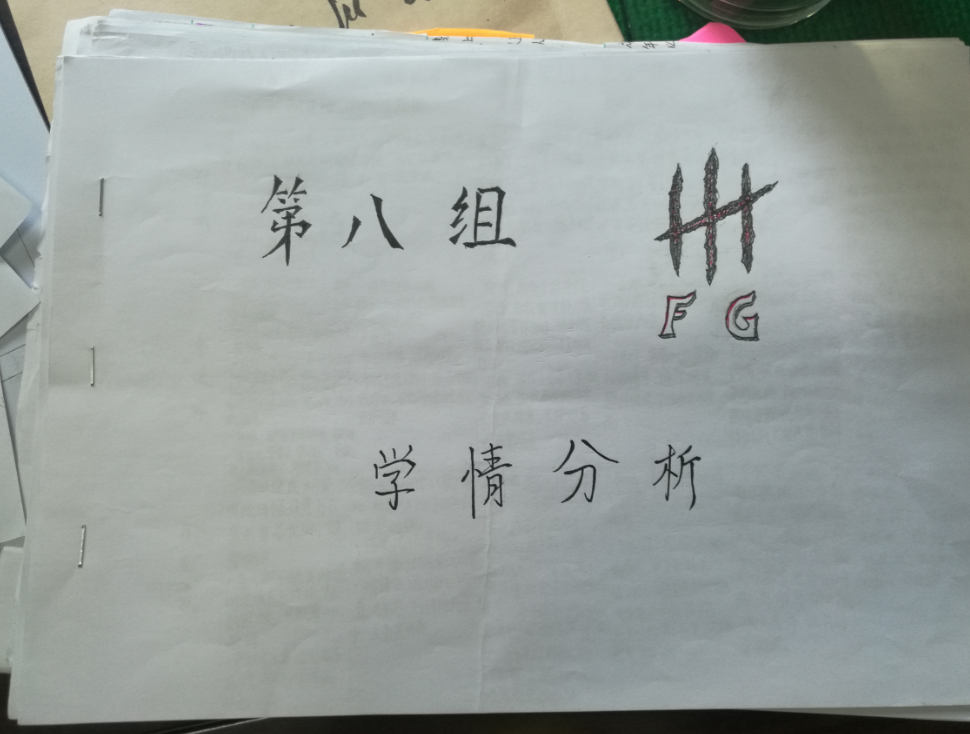 第八组
F G
学情分析